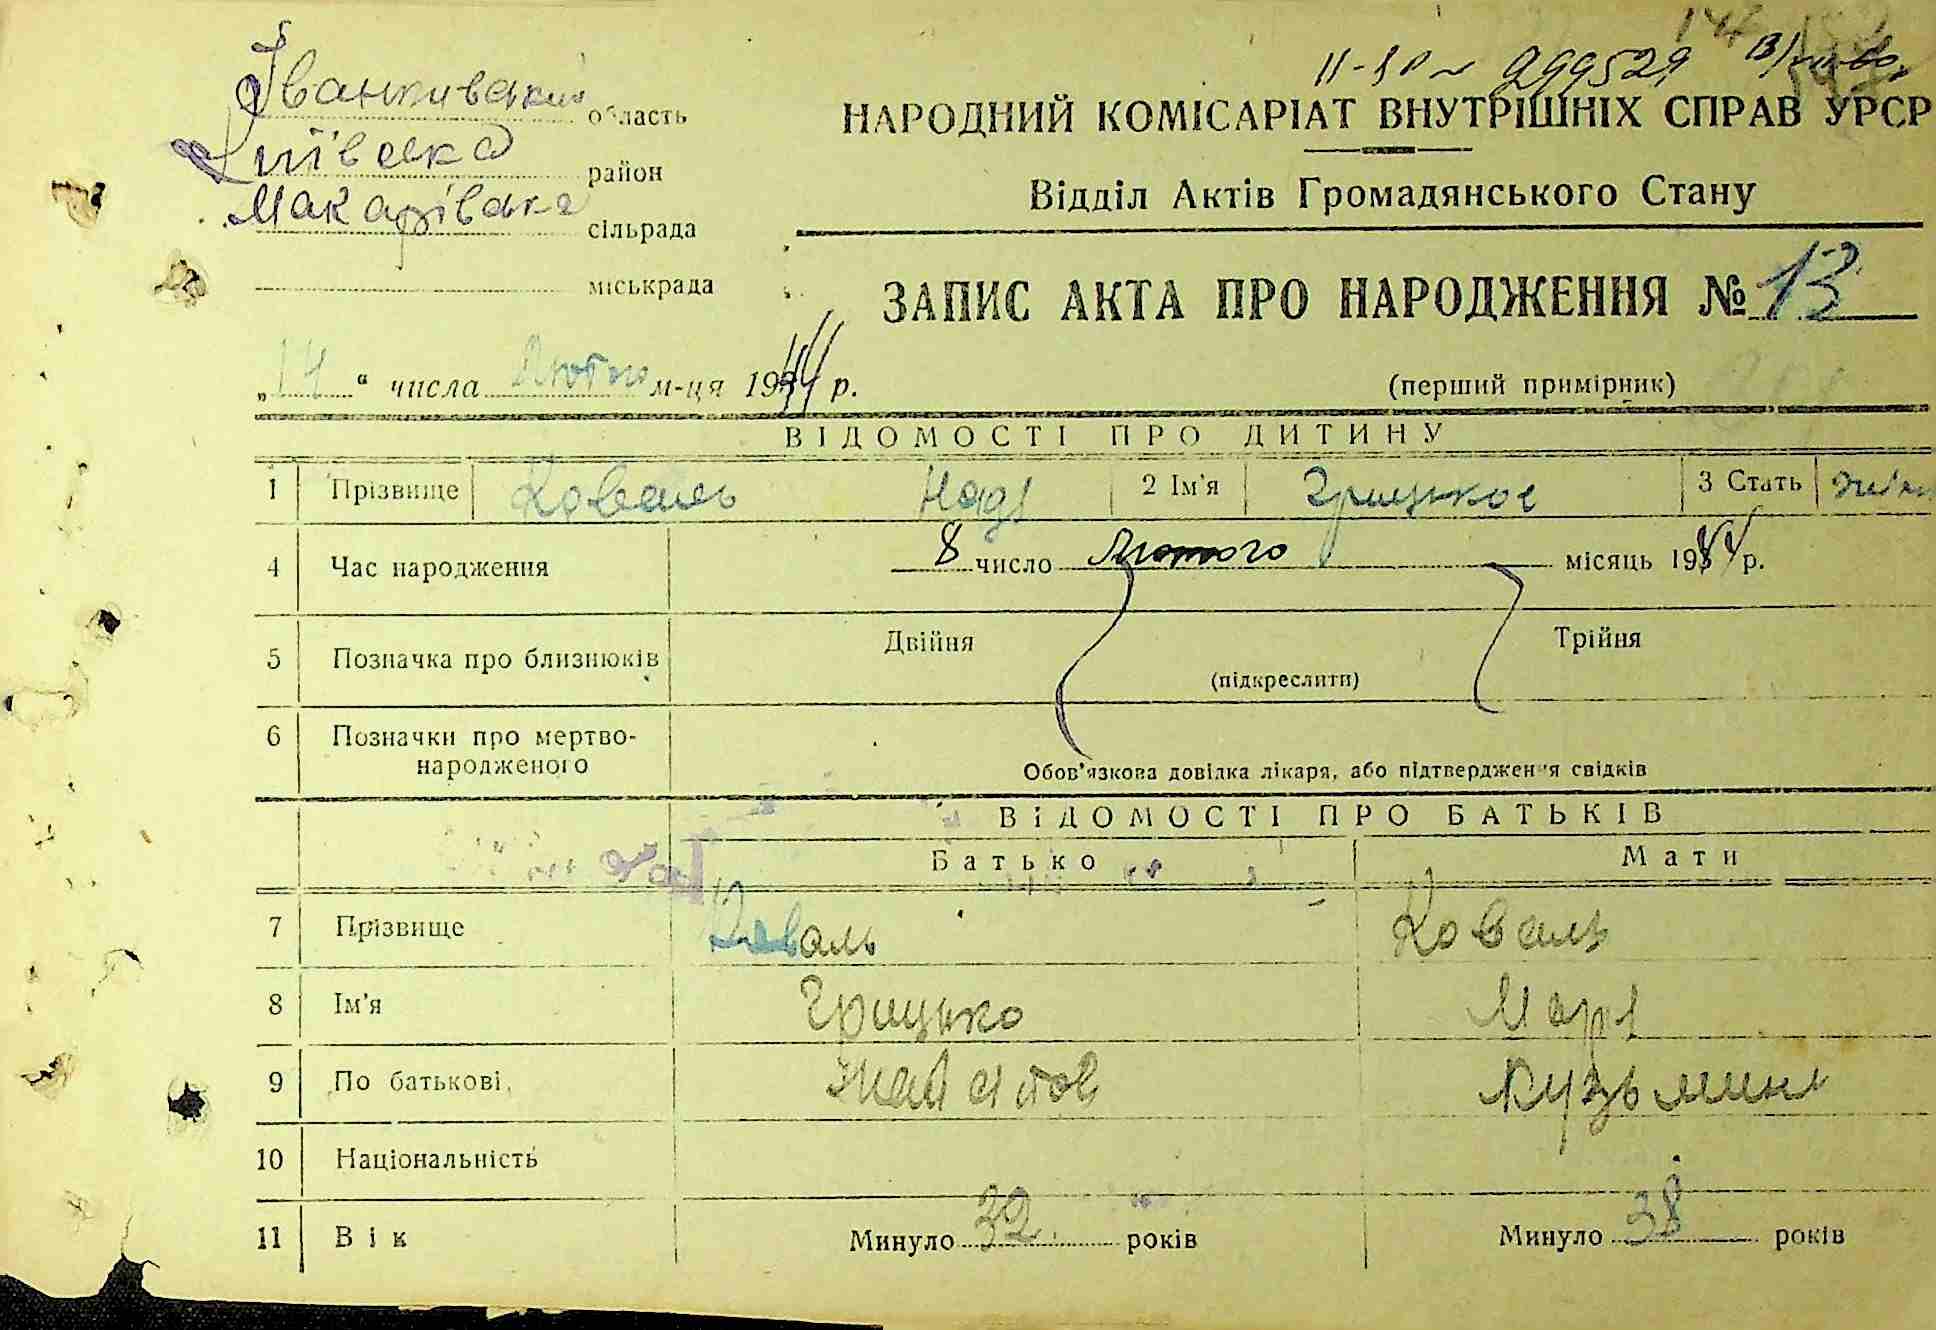 11-
299529
Іванківський область
НАРОДНИЙ КОМІСАРІАТ ВНУТРІШНІХ СПРАВ УРСР
Київська район
Відділ Актів Громадянського Стану
Макарівська сільрада
міськрада
ЗАПИС АКТА ПРО НАРОДЖЕННЯ № 13
„14“ числа Лютого м-ця 1944 р.
(перший примірник)
ВІДОМОСТІ ПРО ДИТИНУ
1 Прізвище Коваль Надя 2 Ім'я Грицькое 3 Стать
4 Час народження 8 число Лютого місяць 1944 р.
5 Позначка про близнюків Двійня Трійня
(підкреслити)
6 Позначки про мертво-
народженого
Обов'язкова довідка лікаря, або підтвердження свідків
ВІДОМОСТІ ПРО БАТЬКІВ
Батько Мати
7 Прізвище Коваль Коваль
8 Ім'я Грицько Марія
9 По батькові Кузьмині
10 Національність
11 Вік Минуло 32 років Минуло 38 років